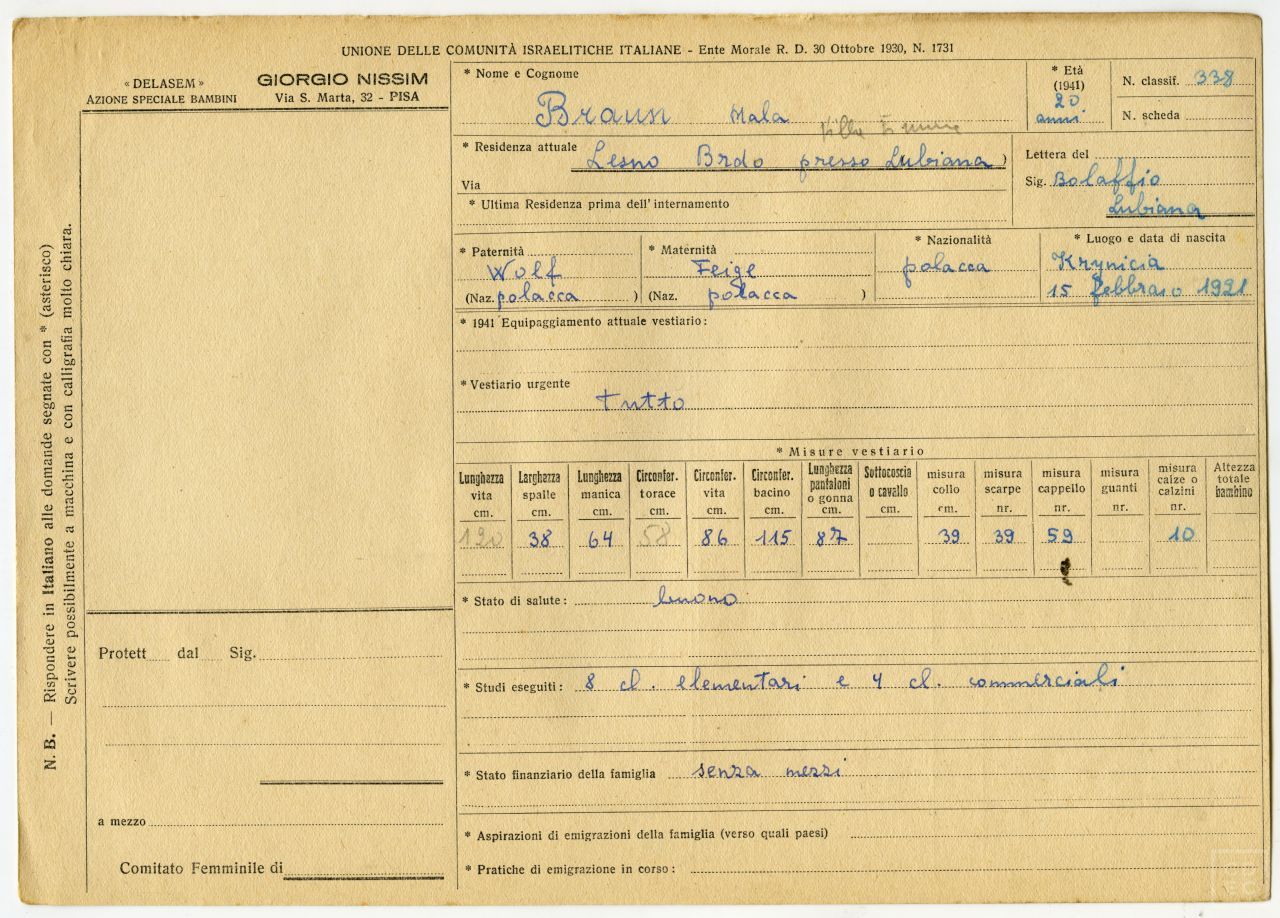 UNIONE DELLE COMUNITÀ ISRAELITICHE ITALIANE - Ente Morale R. D. 30 Ottobre 1930, N. 1731
« DELASEM »
AZIONE SPECIALE BAMBINI
GIORGIO NISSIM
Via S. Marta, 32 - PISA
N. B. — Rispondere in Italiano alle domande segnate con * (asterisco)
Scrivere possibilmente a macchina e con calligrafia molto chiara.
Protett dal Sig.
a mezzo
Comitato Femminile di
* Nome e Cognome
Braun Mala
* Età
(1941)
20
anni
N. classif. 338
N. scheda
Villa
* Residenza attuale Lesno Brdo presso Lubiana )
Via
* Ultima Residenza prima dell'internamento
Lettera del
Sig. Bolaffio
Lubiana
* Paternità
Wolf
(Naz. polacca )
* Maternità
Feige
(Naz. polacca )
* Nazionalità
polacca
* Luogo e data di nascita
Krynicia
15 febbraio 1921
* 1941 Equipaggiamento attuale vestiario:
* Vestiario urgente
tutto
* Misure vestiario
Lunghezza vita cm. 120
Larghezza spalle cm. 38
Lunghezza manica cm. 64
Circonfer. torace cm. 58
Circonfer. vita cm. 86
Circonfer. bacino cm. 115
Lunghezza pantaloni o gonna cm. 87
Sottocoscia o cavallo cm.
misura collo cm. 39
misura scarpe nr. 39
misura cappello nr. 59
misura guanti nr.
misura calze o calzini nr. 10
Altezza totale bambino
* Stato di salute: buono
* Studi eseguiti: 8 cl. elementari e 4 cl. commerciali
* Stato finanziario della famiglia senza mezzi
* Aspirazioni di emigrazioni della famiglia (verso quali paesi)
* Pratiche di emigrazione in corso: